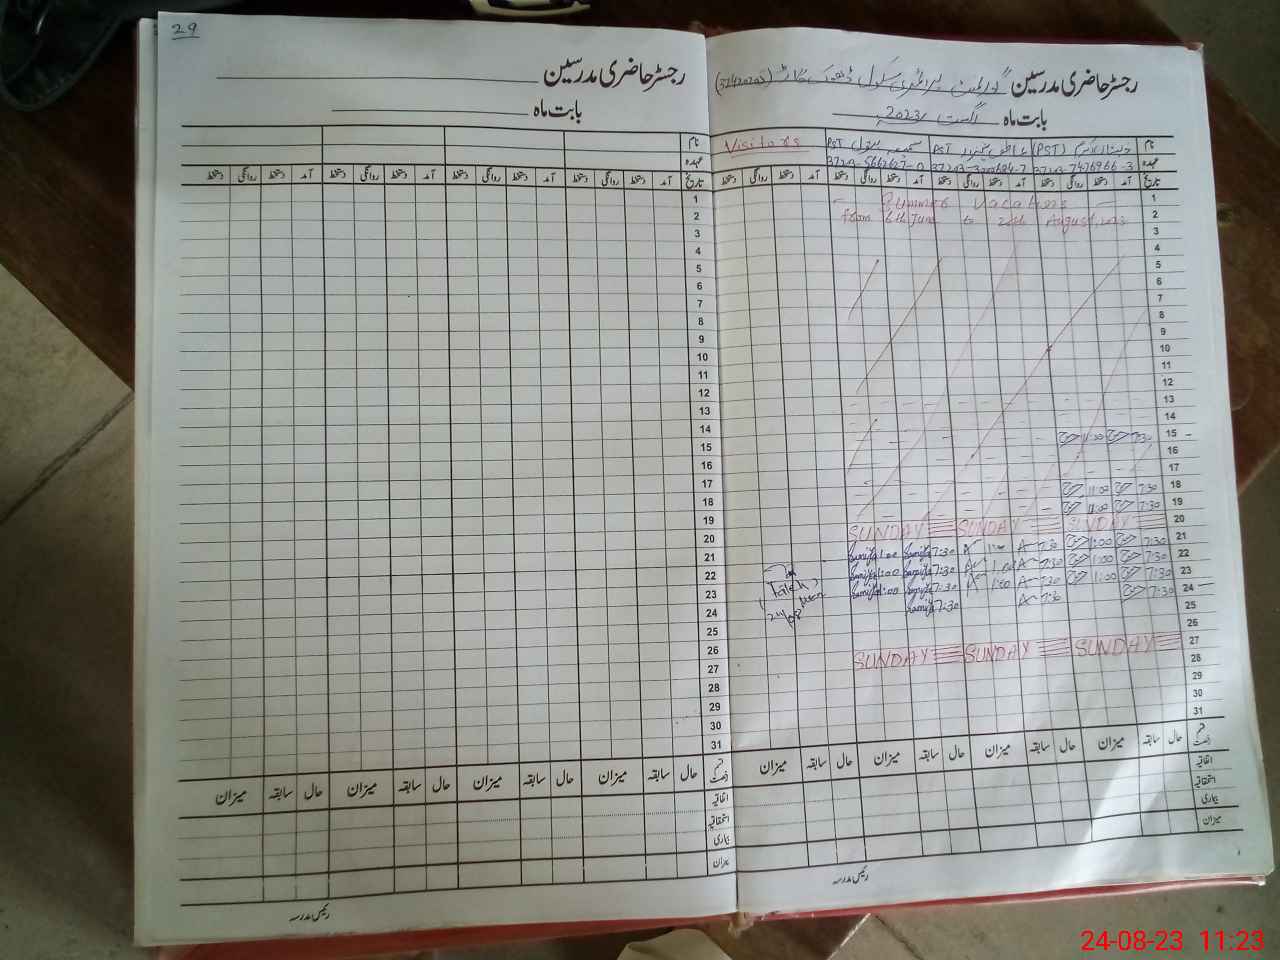 29
رجسٹر حاضری مدرسین
بابت ماہ
نام
عہدہ
تاریخ آمد دستخط روانگی دستخط آمد دستخط روانگی دستخط آمد دستخط روانگی دستخط آمد دستخط روانگی دستخط
1
2
3
4
5
6
7
8
9
10
11
12
13
14
15
16
17
18
19
20
21
22
23
24
25
26
27
28
29
30
31
قسم رخصت حال سابقہ میزان حال سابقہ میزان حال سابقہ میزان حال سابقہ میزان
اتفاقیہ
استحقاقیہ
بیماری
میزان
رئیس مدرسہ
رجسٹر حاضری مدرسین گورنمنٹ پرائمری سکول ڈھوک (37420203)
بابت ماہ اگست 2023
نام (PST) PST PST Visitors
عہدہ
تاریخ آمد دستخط روانگی دستخط آمد دستخط روانگی دستخط آمد دستخط روانگی دستخط آمد دستخط روانگی دستخط
1 Summer Vacations
2 from 6th June to 20th August, 2023
3
4
5
6
7
8
9
10
11
12
13
14
15 7:30 11:00
16
17
18 7:30 11:00
19 7:30 11:00
20 SUNDAY SUNDAY SUNDAY
21 7:30 1:00 7:30 1:00 Samiya 7:30 Samiya 1:00
22 7:30 1:00 7:30 1:00 Samiya 7:30 Samiya 1:00
23 7:30 1:00 7:30 1:00 Samiya 7:30 Samiya 1:00
24 7:30 7:30 Samiya 7:30
25
26
27 SUNDAY SUNDAY SUNDAY
28
29
30
31
قسم رخصت حال سابقہ میزان حال سابقہ میزان حال سابقہ میزان حال سابقہ میزان
اتفاقیہ
استحقاقیہ
بیماری
میزان
رئیس مدرسہ
24-08-23 11:23